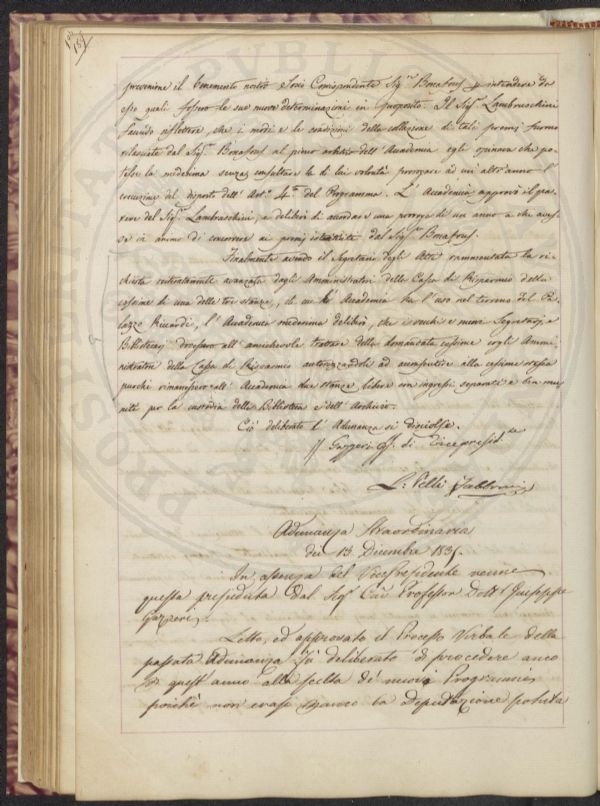 prevenirne il benemerito nostro Socio Corrispondente Sig.r Bonafous, e intendere da
esso quali fossero le sue nuove determinazioni in proposito. Il Sig.r Lambruschini
facendo riflettere che i modi e le condizioni della collazione di tali premj furono
rilasciate dal Sig.r Bonafous al pieno arbitrio dell'Accademia egli opinava che po-
tesse la medesima senza consultare la di lui volontà prorogare ad un'altr'anno il
concorso del disposto dell'Art.o 4.o del Programma. L'Accademia approvò il pa-
rere del Sig.r Lambruschini, e deliberò di accordare una proroga di un anno a chi aves-
se in animo di concorrere ai premj dal Sig.r Bonafous.
Finalmente avendo il Segretario degli Atti rammentata la ri-
chiesta avanzata dagli Amministratori della Cassa di Risparmio della
cessione di una delle tre stanze, di cui l'Accademia ha l'uso nel terreno del Pa-
lazzo Riccardi, l'Accademia medesima deliberò, che i vecchi e nuovi Segretarj, e
Bibliotecarj dovessero all'amichevole trattare della domandata cessione cogli Ammi-
nistratori della Cassa di Risparmio autorizzandoli ad acconsentire alla cessione stessa
purchè rimanessero all'Accademia due stanze libere con ingressi separati e ben mu-
niti per la custodia della Biblioteca e dell'Archivio.
Ciò deliberato l'Adunanza si disciolse.
Gazzeri ff. di Vicepresid.te
L. Pelli Fabbroni
Adunanza Straordinaria
dei 13. Dicembre 1835.
In assenza del Vicepresidente venne
questa preseduta dal Sig.r Cav. Professor Dott. Giuseppe
Gazzeri.
Letto, ed approvato il Processo Verbale della
passata Adunanza fu deliberato di procedere anco
in quest'anno alla scelta de' nuovi Programmi,
poichè non erasi manco la Deputazione potuta